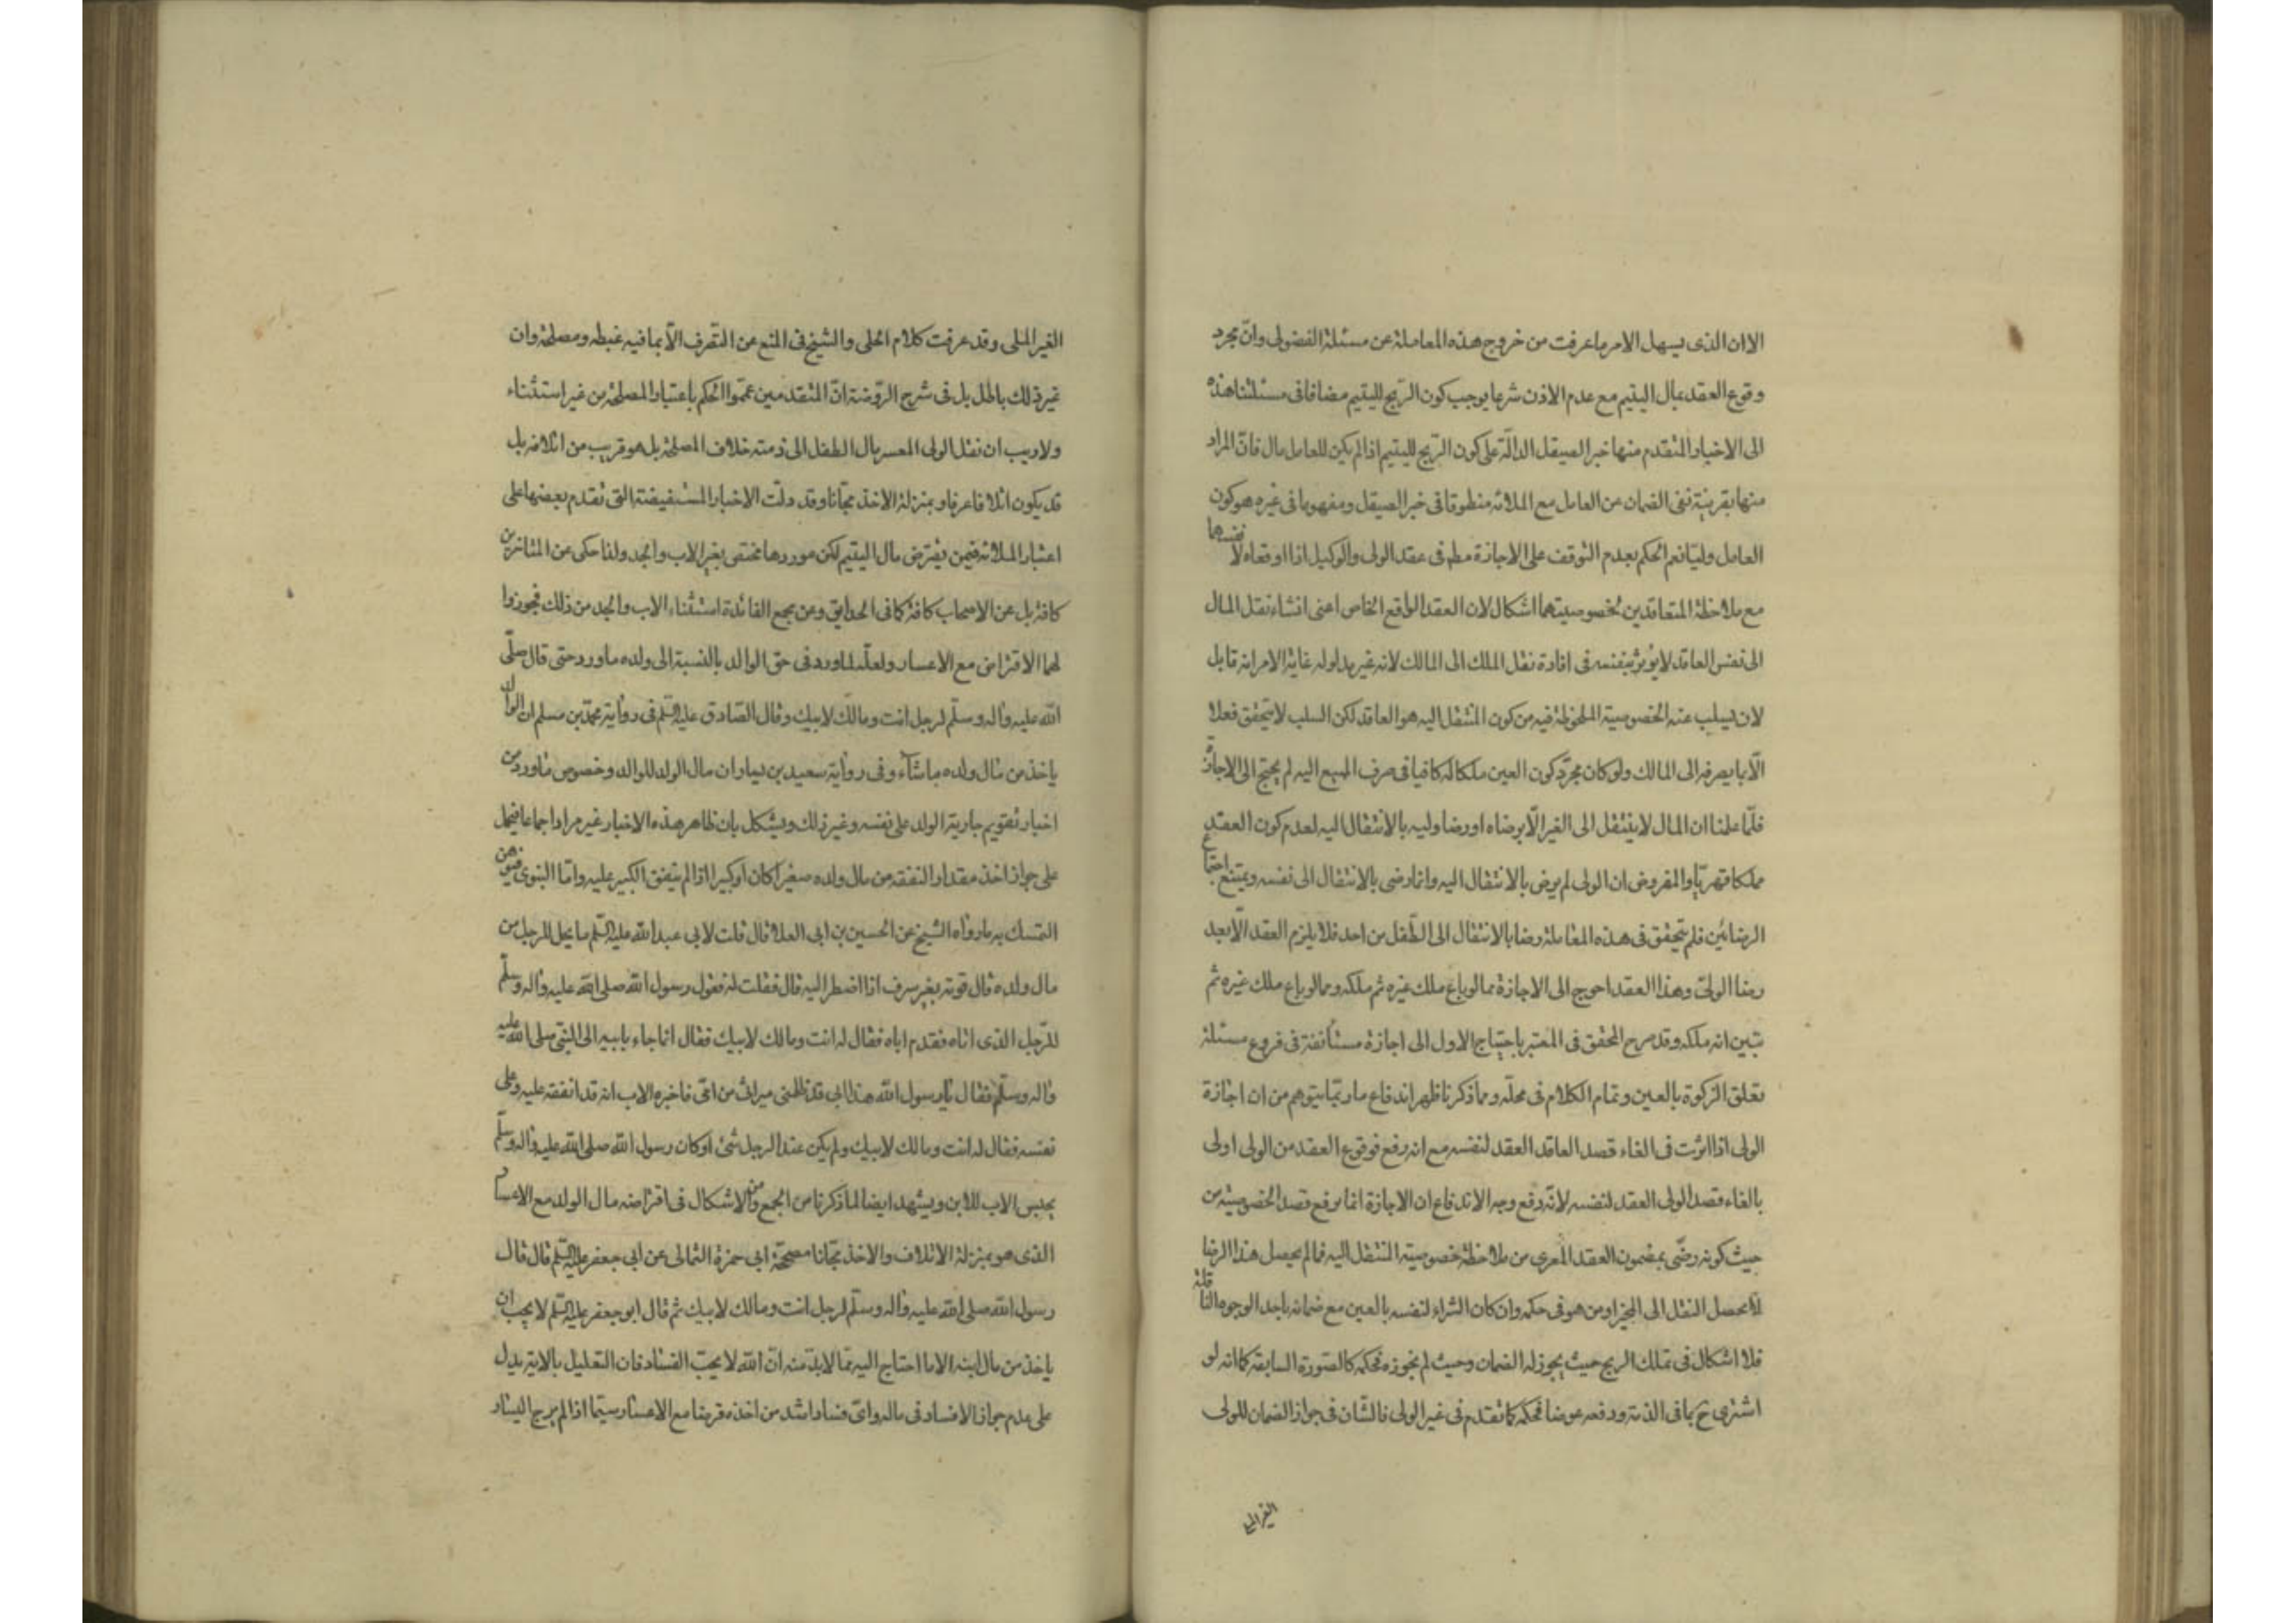 الا ان الذى يسهل الامر ما عرفت من خروج هذه المعاملة عن مسئلة الفضولى وانّ مجرد
وقوع العقد بمال اليتيم مع عدم الاذن شرعا يوجب كون الرّبح لليتيم مضافا فى مسئلتنا هذه
الى الاخبار المتقدم منها خبر الصيقل الدالّة على كون الرّبح لليتيم اذا لم يكن للعامل مال فانّ المراد
منها بقرينة نفى الضمان عن العامل مع الملائة منطوقا فى خبر الصيقل ومفهوما فى غيره هو كون
العامل وليّا نعم الحكم بعدم التوقف على الاجازة مطم فى عقد الولى والوكيل اذا اوقعاه لا نفسهما
مع ملاحظة المتعاقدين بخصوصيتهما اشكال لان العقد الواقع الخاص اعنى انشاء نقل المال
الى نفس العاقد لا يؤثر بنفسه فى افادة نقل الملك الى المالك لانه غير مدلوله غاية الامر انه قابل
لان يسلب عنه الخصوصية الملحوظة فيه من كون المنتقل اليه هو العاقد لكن السلب لا يتحقق فعلا
الّا بما يصرفه الى المالك ولو كان مجرّد كون العين ملكا له كافيا فى صرف المبيع اليه لم يحتج الى الاجازة
فلمّا علمنا ان المال لا ينتقل الى الغير الّا برضاه او رضا وليه بالانتقال اليه لعدم كون العقد
مملكا قهريّا والمفروض ان الولى لم يرض بالانتقال اليه وانما رضى بالانتقال الى نفسه ويمتنع اجتماع
الرضائين فلم يتحقق فى هذه المعاملة رضا بالانتقال الى الطّفل من احد فلا يلزم العقد الّا بعد
رضا الولىّ وهذا العقد احوج الى الاجازة مما لو باع ملك غيره ثم ملكه ومما لو باع ملك غيره ثم
تبين انه ملكه وقد صرح المحقق فى المعتبر باحتياج الاول الى اجازة مستأنفة فى فروع مسئلة
تعلق الزكوة بالعين وتمام الكلام فى محلّه ومما ذكرنا ظهر اندفاع ما ربّما يتوهم من ان اجازة
الولى اذا اثرت فى الغاء قصد العاقد العقد لنفسه مع انه رفع فوقوع العقد من الولى اولى
بالغاء قصد الولى العقد لنفسه لانّه دفع وجه الاندفاع ان الاجازة انما يرفع قصد الخصوصية من
حيث كونه رضّى بمضمون العقد المعرى من ملاحظة خصوصية المنتقل اليه فما لم يحصل هذا الرضا
لا يحصل النقل الى المجيز او من هو فى حكمه وان كان الشراء لنفسه بالعين مع ضمانه باحد الوجوه الناقلة
فلا اشكال فى تملك الربح حيث يجوز له الضمان وحيث لم نجوزه فحكمه كالصورة السابقة كما انه لو
اشترى ح بما فى الذمة ودفعه عوضا فحكمه كما تقدم فى غير الولى فالشّان فى جواز الضمان للولى
الغير الملى
الغير الملى وقد عرفت كلام الحلى والشيخ فى المنع عن التّصرف الّا بما فيه غبطه ومصلحة وان
غير ذلك باطل بل فى شرح الرّوضة انّ المتقدمين عمّموا الحكم باعتبار المصلحة من غير استثناء
ولا ريب ان نقل الولى المعسر مال الطفل الى ذمته خلاف المصلحة بل هو قريب من اتلافه بل
قد يكون اتلافا عرفا وبمنزلة الاخذ مجّانا وقد دلّت الاخبار المستفيضة التى تقدم بعضها على
اعتبار الملائة فيمن يقترض مال اليتيم لكن موردها مختص بغير الاب والجد ولذا حكى عن المتاخرين
كافة بل عن الاصحاب كافة كما فى الحدايق وعن مجمع الفائدة استثناء الاب والجد من ذلك فجوزوا
لهما الاقتراض مع الاعسار ولعلّه لما ورد فى حق الوالد بالنسبة الى ولده ما ورد حتى قال صلّى
الله عليه واله وسلّم لرجل انت ومالك لابيك وقال الصّادق عليه السّلم فى رواية محمّد بن مسلم ان الوالد
ياخذ من مال ولده ما شآء وفى رواية سعيد بن يسار ان مال الولد للوالد وخصوص ما ورد من
اخبار تقويم جارية الولد على نفسه وغير ذلك ويشكل بان ظاهر هذه الاخبار غير مراد اجماعا فيحمل
على جواز اخذ مقدار النفقة من مال ولده صغيرا كان او كبيرا اذا لم ينفق الكبير عليه وامّا النبوى
التمسك به ما رواه الشيخ عن الحسين بن ابى العلا قال قلت لابى عبد الله عليه السّلم ما يحل للرجل من
مال ولده قال قوته بغير سرف اذا اضطر اليه قال فقلت له فقول رسول الله صلى الله عليه واله وسلّم
للرّجل الذى اتاه فقدم اباه فقال له انت ومالك لابيك فقال انما جاء بابيه الى النّبى صلى الله عليه
واله وسلّم فقال يا رسول الله هذا ابى قد ظلمنى ميراثى من امّى فاخبره الاب انه قد انفقه عليه وعلى
نفسه فقال له انت ومالك لابيك ولم يكن عند الرجل شئ اوكان رسول الله صلى الله عليه واله وسلّم
يحبس الاب للابن ويشهد ايضا لما ذكرنا من الجمع ومن الاشكال فى اقتراضه مال الولد مع الاعسار
الذى هو بمنزلة الاتلاف والاخذ مجّانا مصححة ابى حمزة الثمالى عن ابى جعفر عليه السّلم قال قال
رسول الله صلى الله عليه واله وسلّم لرجل انت ومالك لابيك ثم قال ابو جعفر عليه السّلم لا يحب ان
ياخذ من مال ابنه الا ما احتاج اليه ممّا لا بدّ منه انّ الله لا يحبّ الفساد فان التعليل بالاية يدل
على عدم جواز الافساد فى ماله واىّ فساد اشد من اخذه قرضا مع الاعسار سيّما اذا لم يرج اليسار